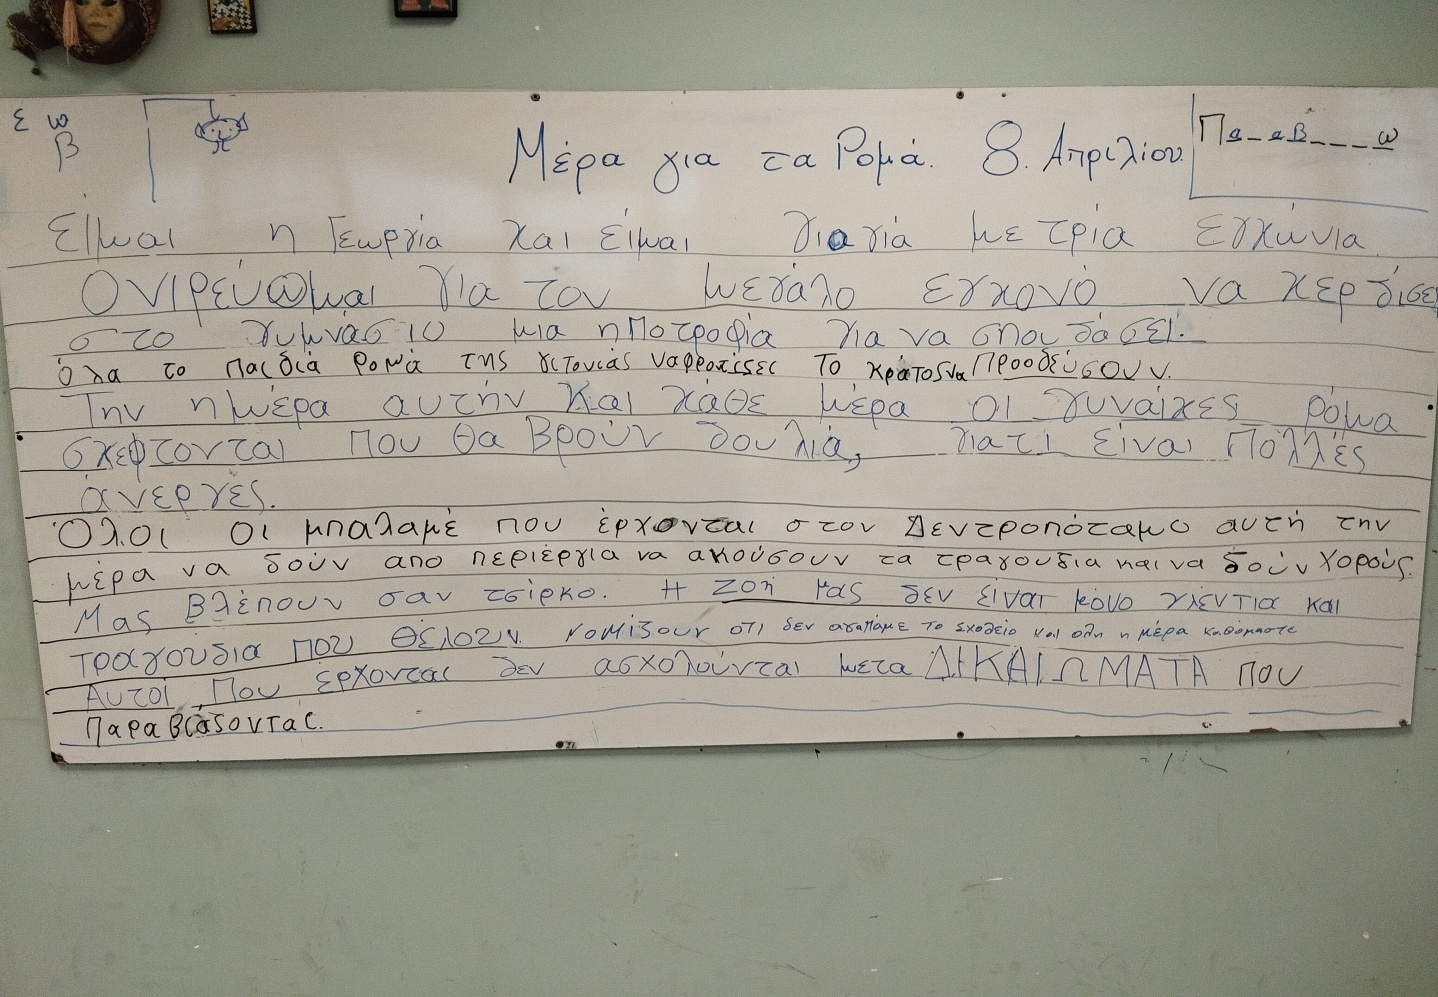 ε ω
β
Πα_αβ____ω
Μέρα για τα Ρομά. 8. Απριλίου.
Είμαι η Γεωργία και είμαι γιαγιά με τρία εγκώνια
Ονιρεύωμαι για τον μεγάλο εγκονό να κερδίσει
στο γυμνάσιο μια ηποτροφία για να σπουδάσει.
Όλα το παιδιά ρομά της γιτονιάς να φροτίσες Το κράτος να Προοδεύσουν.
Την ημέρα αυτήν Και κάθε μέρα οι γυναίκες ρόμα
σκεφτονται που θα βρούν δουλιά, γιατί είναι Πολλές
άνεργες.
Όλοι οι μπαλαμέ που έρχονται στον Δεντροπόταμο αυτή την
μέρα να δούν απο περιέργια να ακούσουν τα τραγουδια και να δούν χορούς.
Μας βλέπουν σαν τσίρκο. Η Ζοή μας δεν είναι μόνο γλέντια και
τραγούδια που θέλουν. νομίζουν οτι δεν αγαπάμε το σχολείο και ολη η μέρα καθόμαστε
Αυτοί Που έρχονται δεν ασχολούνται μετα ΔΙΚΑΙΩΜΑΤΑ που
Παραβιάζονται.